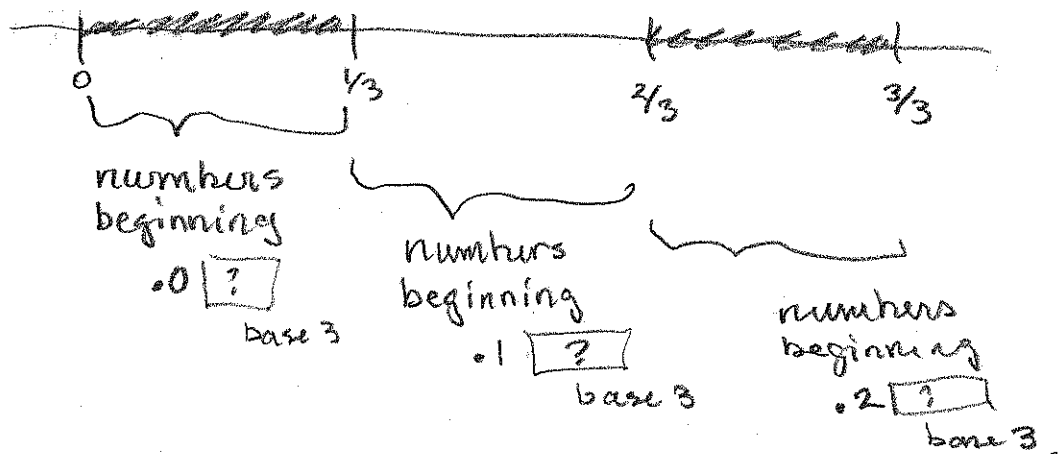 0 1/3 2/3 3/3
numbers
beginning
.0 ?
base 3
numbers
beginning
.1 ?
base 3
numbers
beginning
.2 ?
base 3